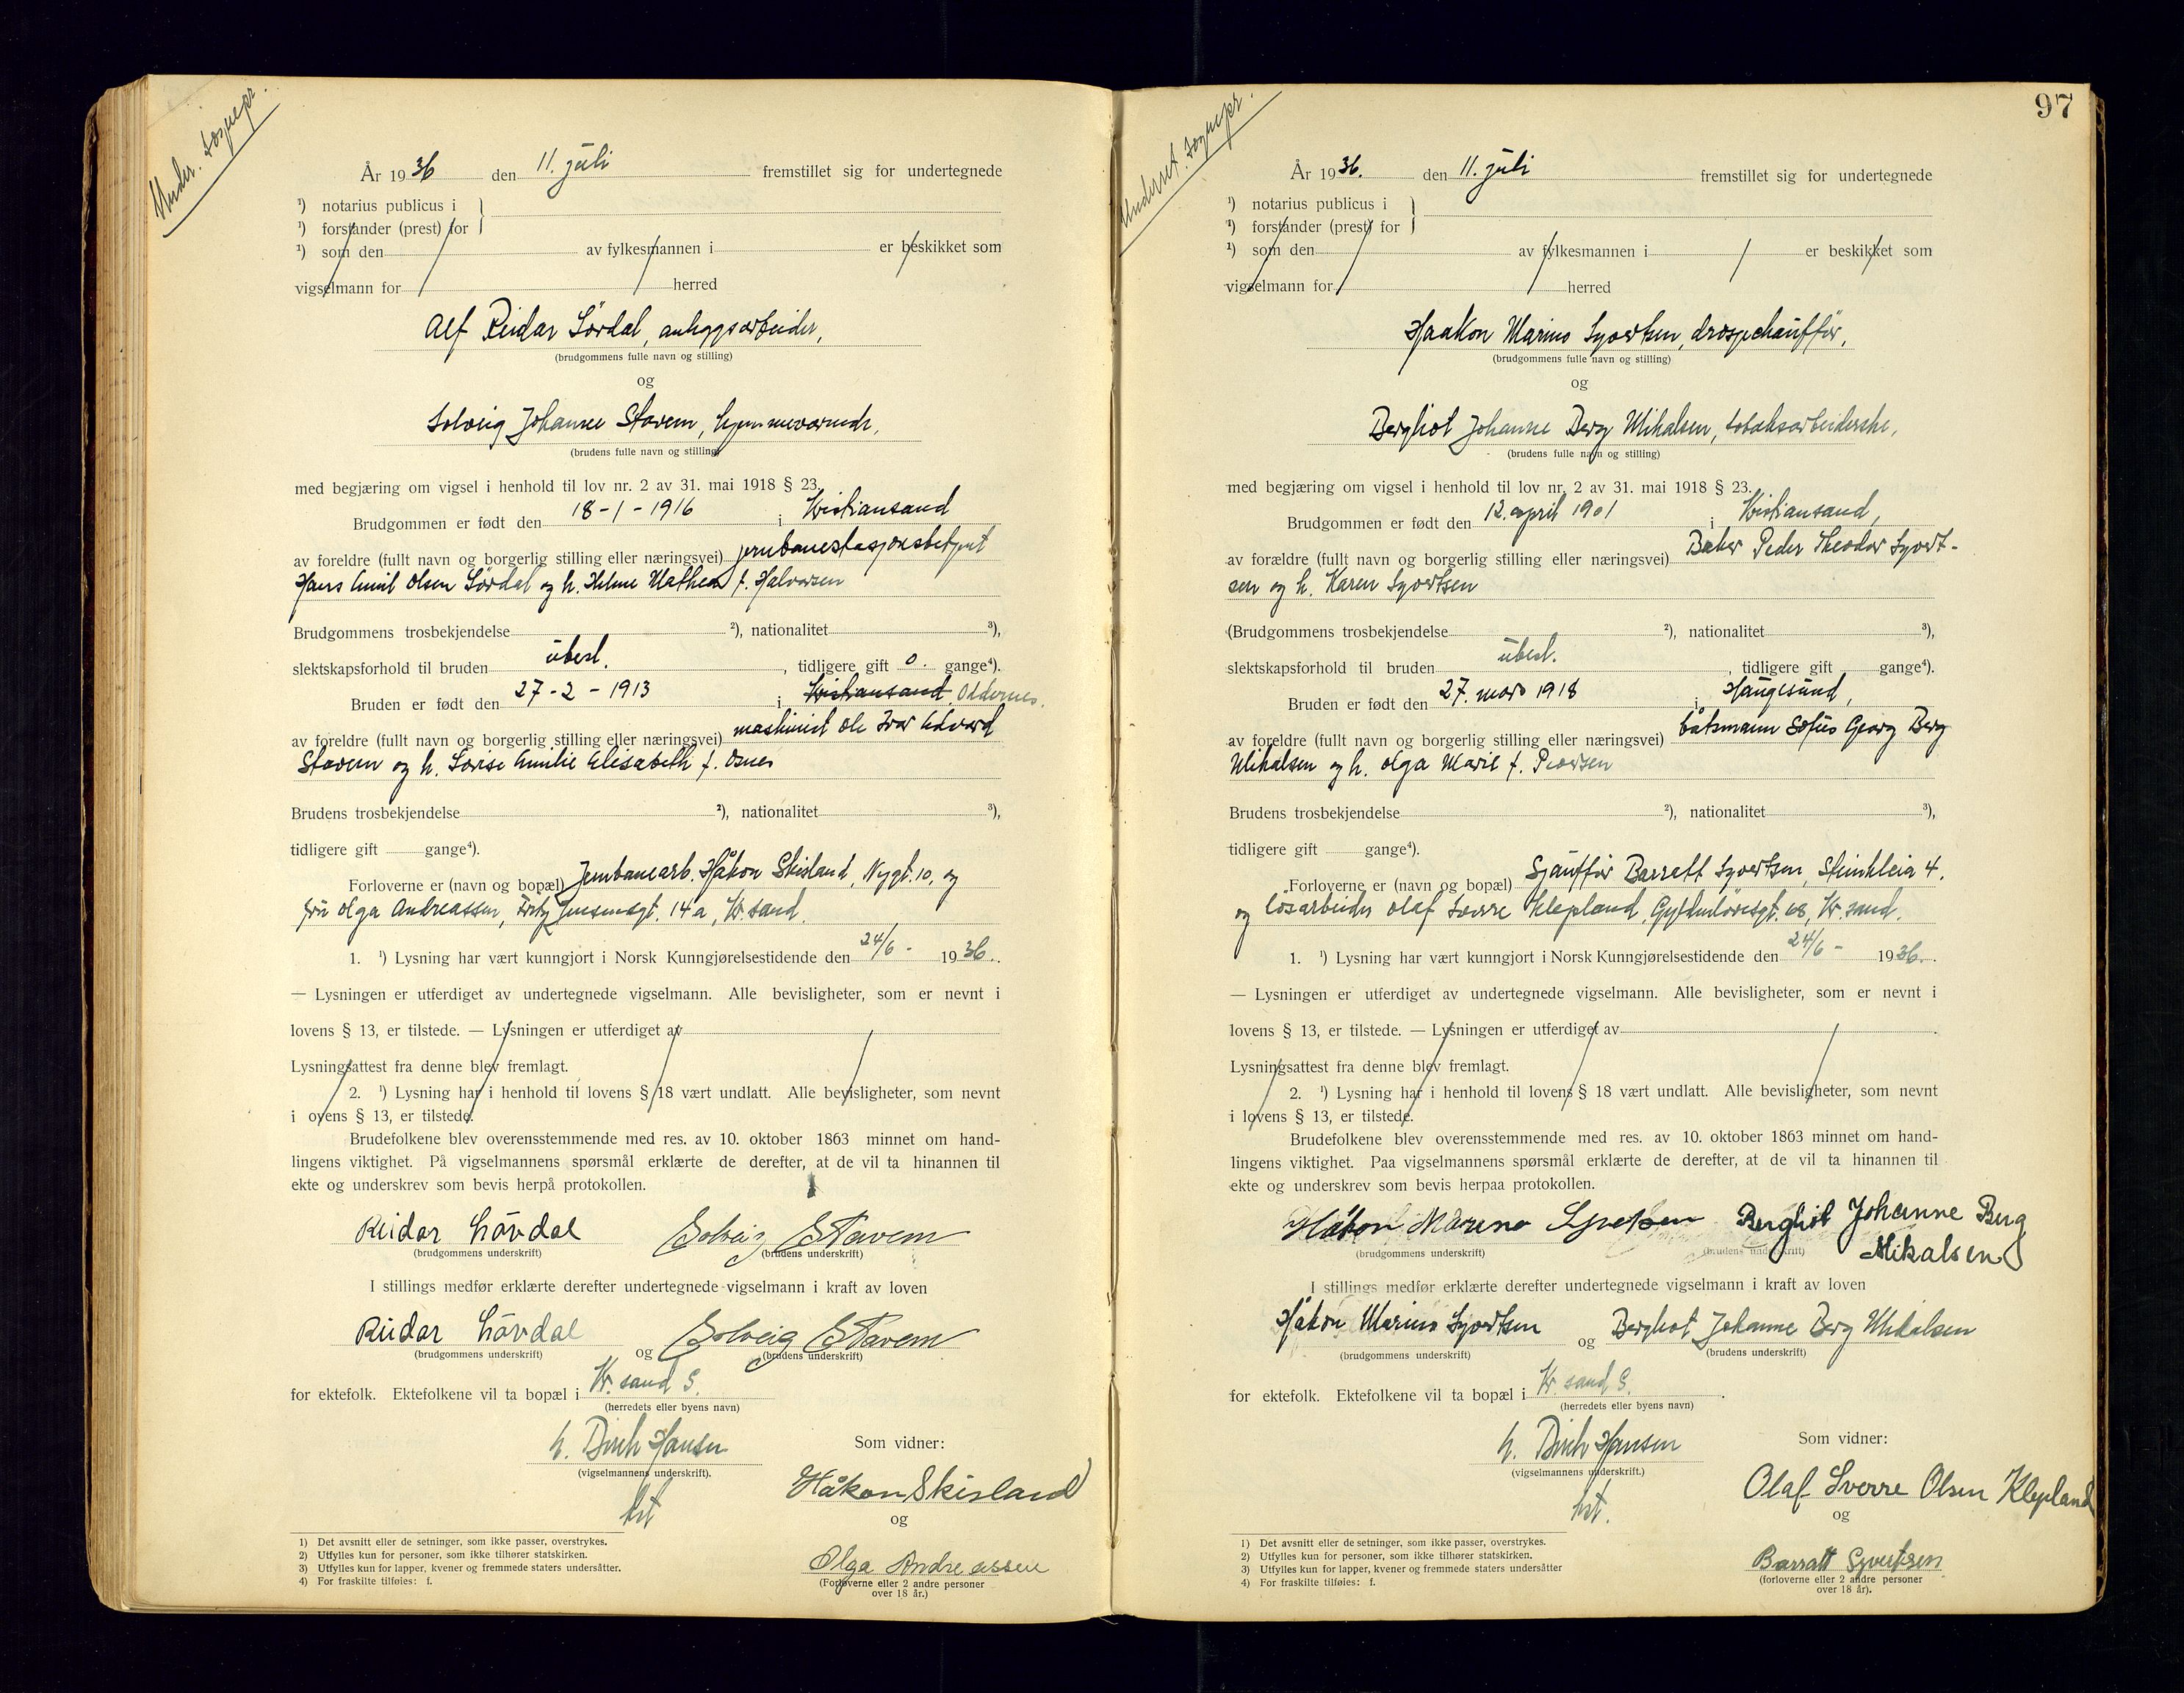 Underr. sognepr.
År 1936 den 11. juli fremstillet sig for undertegnede
¹) notarius publicus i
¹) forstander (prest) for
¹) som den av fylkesmannen i er beskikket som
vigselmann for herred
Alf Reidar Lövdal, anleggsarbeider,
(brudgommens fulle navn og stilling)
og
Solveig Johanne Stavem, hjemmeværende,
(brudens fulle navn og stilling)
med begjæring om vigsel i henhold til lov nr. 2 av 31. mai 1918 § 23.
Brudgommen er født den 18-1-1916 i Kristiansand
av foreldre (fullt navn og borgerlig stilling eller næringsvei) jernbanestasjonsbetjent
Hans Emil Olsen Lövdal og h. Helene Mathea f. Halvorsen
Brudgommens trosbekjendelse ²), nationalitet ³),
slektskapsforhold til bruden ubesl. , tidligere gift 0. gange⁴).
Bruden er født den 27-2-1913 i Kristiansand Oddernes.
av foreldre (fullt navn og borgerlig stilling eller næringsvei) maskinist Ole Ivar Edvard
Stavem og h. Lovise Emilie Elisabeth f. Osnes
Brudens trosbekjendelse ²), nationalitet ³),
tidligere gift gange⁴).
Forloverne er (navn og bopæl) Jernbanearb. Håkon Skisland, Nygt. 10, og
fru Olga Andreassen, Fritz Jensensgt. 14a, Kr.sand.
1. ¹) Lysning har vært kunngjort i Norsk Kunngjørelsestidende den 24/6 - 1936.
— Lysningen er utferdiget av undertegnede vigselmann. Alle bevisligheter, som er nevnt i
lovens § 13, er tilstede. — Lysningen er utferdiget av
Lysningsattest fra denne blev fremlagt.
2. ¹) Lysning har i henhold til lovens § 18 vært undlatt. Alle bevisligheter, som nevnt
i ovens § 13, er tilstede.
Brudefolkene blev overensstemmende med res. av 10. oktober 1863 minnet om hand-
lingens viktighet. På vigselmannens spørsmål erklærte de derefter, at de vil ta hinannen til
ekte og underskrev som bevis herpå protokollen.
Reidar Lövdal Solveig Stavem
(brudgommens underskrift) (brudens underskrift)
I stillings medfør erklærte derefter undertegnede vigselmann i kraft av loven
Reidar Lövdal og Solveig Stavem
(brudgommens underskrift) (brudens underskrift)
for ektefolk. Ektefolkene vil ta bopæl i Kr.sand S.
(herredets eller byens navn)
Birch Hansen
(vigselmannens underskrift).
Som vidner:
Håkon Skisland
og
Olga Andreassen
(Forloverne eller 2 andre personer
over 18 år.)
1) Det avsnitt eller de setninger, som ikke passer, overstrykes.
2) Utfylles kun for personer, som ikke tilhører statskirken.
3) Utfylles kun for lapper, kvener og fremmede staters undersåtter.
4) For fraskilte tilføies: f.
97
Underret. sognepr.
År 1936. den 11. juli fremstillet sig for undertegnede
¹) notarius publicus i
¹) forstander (prest) for
¹) som den av fylkesmannen i er beskikket som
vigselmann for herred
Haakon Marino Syvertsen, drosjechauffør,
(brudgommens fulle navn og stilling)
og
Bergliot Johanne Berg Mikalsen, tobaksarbeiderske,
(brudens fulle navn og stilling)
med begjæring om vigsel i henhold til lov nr. 2 av 31. mai 1918 § 23.
Brudgommen er født den 12. april 1901 i Kristiansand,
av forældre (fullt navn og borgerlig stilling eller næringsvei) Baker Peder Theodor Syvert-
sen og h. Karen Syvertsen
(Brudgommens trosbekjendelse ²), nationalitet ³),
slektskapsforhold til bruden ubesl. , tidligere gift gange⁴).
Bruden er født den 27. mars 1918 i Haugesund,
av foreldre (fullt navn og borgerlig stilling eller næringsvei) båtsmann Sofus Georg Berg
Mikalsen og h. Olga Marie f. Iversen
Brudens trosbekjendelse ²), nationalitet ³),
tidligere gift gange⁴).
Forloverne er (navn og bopæl) Sjauffør Barratt Syvertsen, Steinkleia 4,
og lösarbeider Olaf Sverre Klepland, Gyldenlövesgt. 68, Kr.sand.
1. ¹) Lysning har vært kunngjort i Norsk Kunngjørelsestidende den 24/6 - 1936.
— Lysningen er utferdiget av undertegnede vigselmann. Alle bevisligheter, som er nevnt i
lovens § 13, er tilstede. — Lysningen er utferdiget av
Lysningsattest fra denne blev fremlagt.
2. ¹) Lysning har i henhold til lovens § 18 vært undlatt. Alle bevisligheter, som nevnt
i lovens § 13, er tilstede.
Brudefolkene blev overensstemmende med res. av 10. oktober 1863 minnet om hand-
lingens viktighet. Paa vigselmannens spørsmål erklærte de derefter, at de vil ta hinannen til
ekte og underskrev som bevis herpaa protokollen.
Håkon Marino Syvertsen Bergliot Johanne Berg
Mikalsen
(brudgommens underskrift) (brudens underskrift)
I stillings medfør erklærte derefter undertegnede vigselmann i kraft av loven
Håkon Marino Syvertsen og Bergliot Johanne Berg Mikalsen
(brudgommens underskrift) (brudens underskrift)
for ektefolk. Ektefolkene vil ta bopæl i Kr.sand S.
(herredets eller byens navn)
Birch Hansen
(vigselmannens underskrift.)
Som vidner:
Olaf Sverre Olsen Klepland
og
Barratt Syvertsen
(forloverne eller 2 andre personer
over 18 år).
1) Det avsnitt eller de setninger, som ikke passer, overstrykes.
2) Utfylles kun for personer, som ikke tilhører statskirken.
3) Utfylles kun for lapper, kvener og fremmede staters undersåtter
4) For fraskilte tilføies: f.